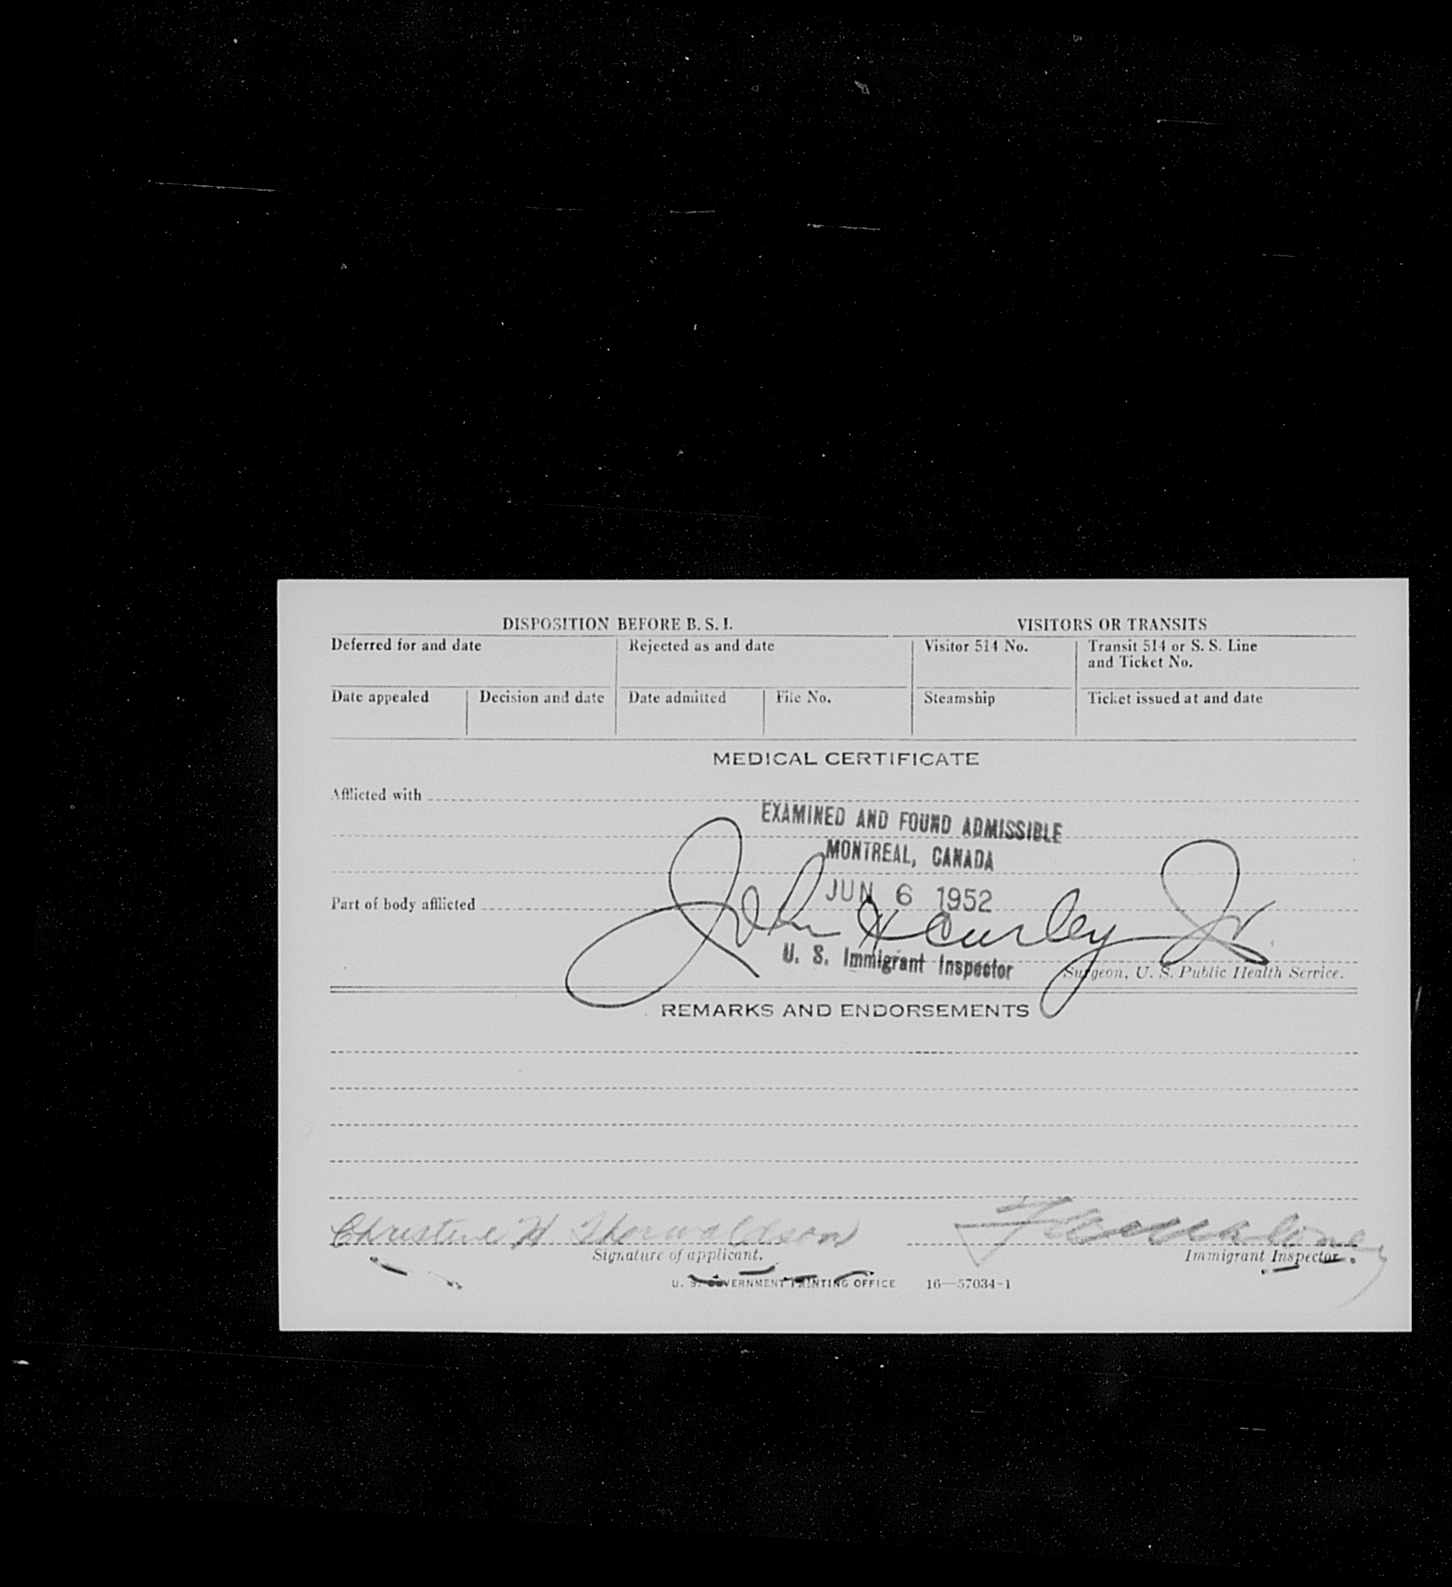 DISPOSITION BEFORE B. S. I.
VISITORS OR TRANSITS
Deferred for and date
Rejected as and date
Visitor 514 No.
Transit 514 or S. S. Line
and Ticket No.
Date appealed
Decision and date
Date admitted
File No.
Steamship
Ticket issued at and date
MEDICAL CERTIFICATE
Afflicted with
EXAMINED AND FOUND ADMISSIBLE
MONTREAL, CANADA
JUN 6 1952
Part of body afflicted
John H Curley Jr.
U. S. Immigrant Inspector
Surgeon, U. S. Public Health Service.
REMARKS AND ENDORSEMENTS
Christine H Thorwaldson
Signature of applicant.
Immigrant Inspector.
U. S. GOVERNMENT PRINTING OFFICE 16—57034-1